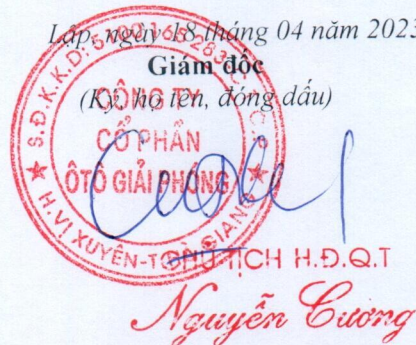 Lập, ngày 18 tháng 04 năm 2023
Giám đốc
(Ký, họ tên, đóng dấu)
CÔNG TY
CỔ PHẦN
ÔTÔ GIẢI PHÓNG
H.VỊ XUYÊN-T. GIANG
CHỦ TỊCH H.Đ.Q.T
Nguyễn Cường